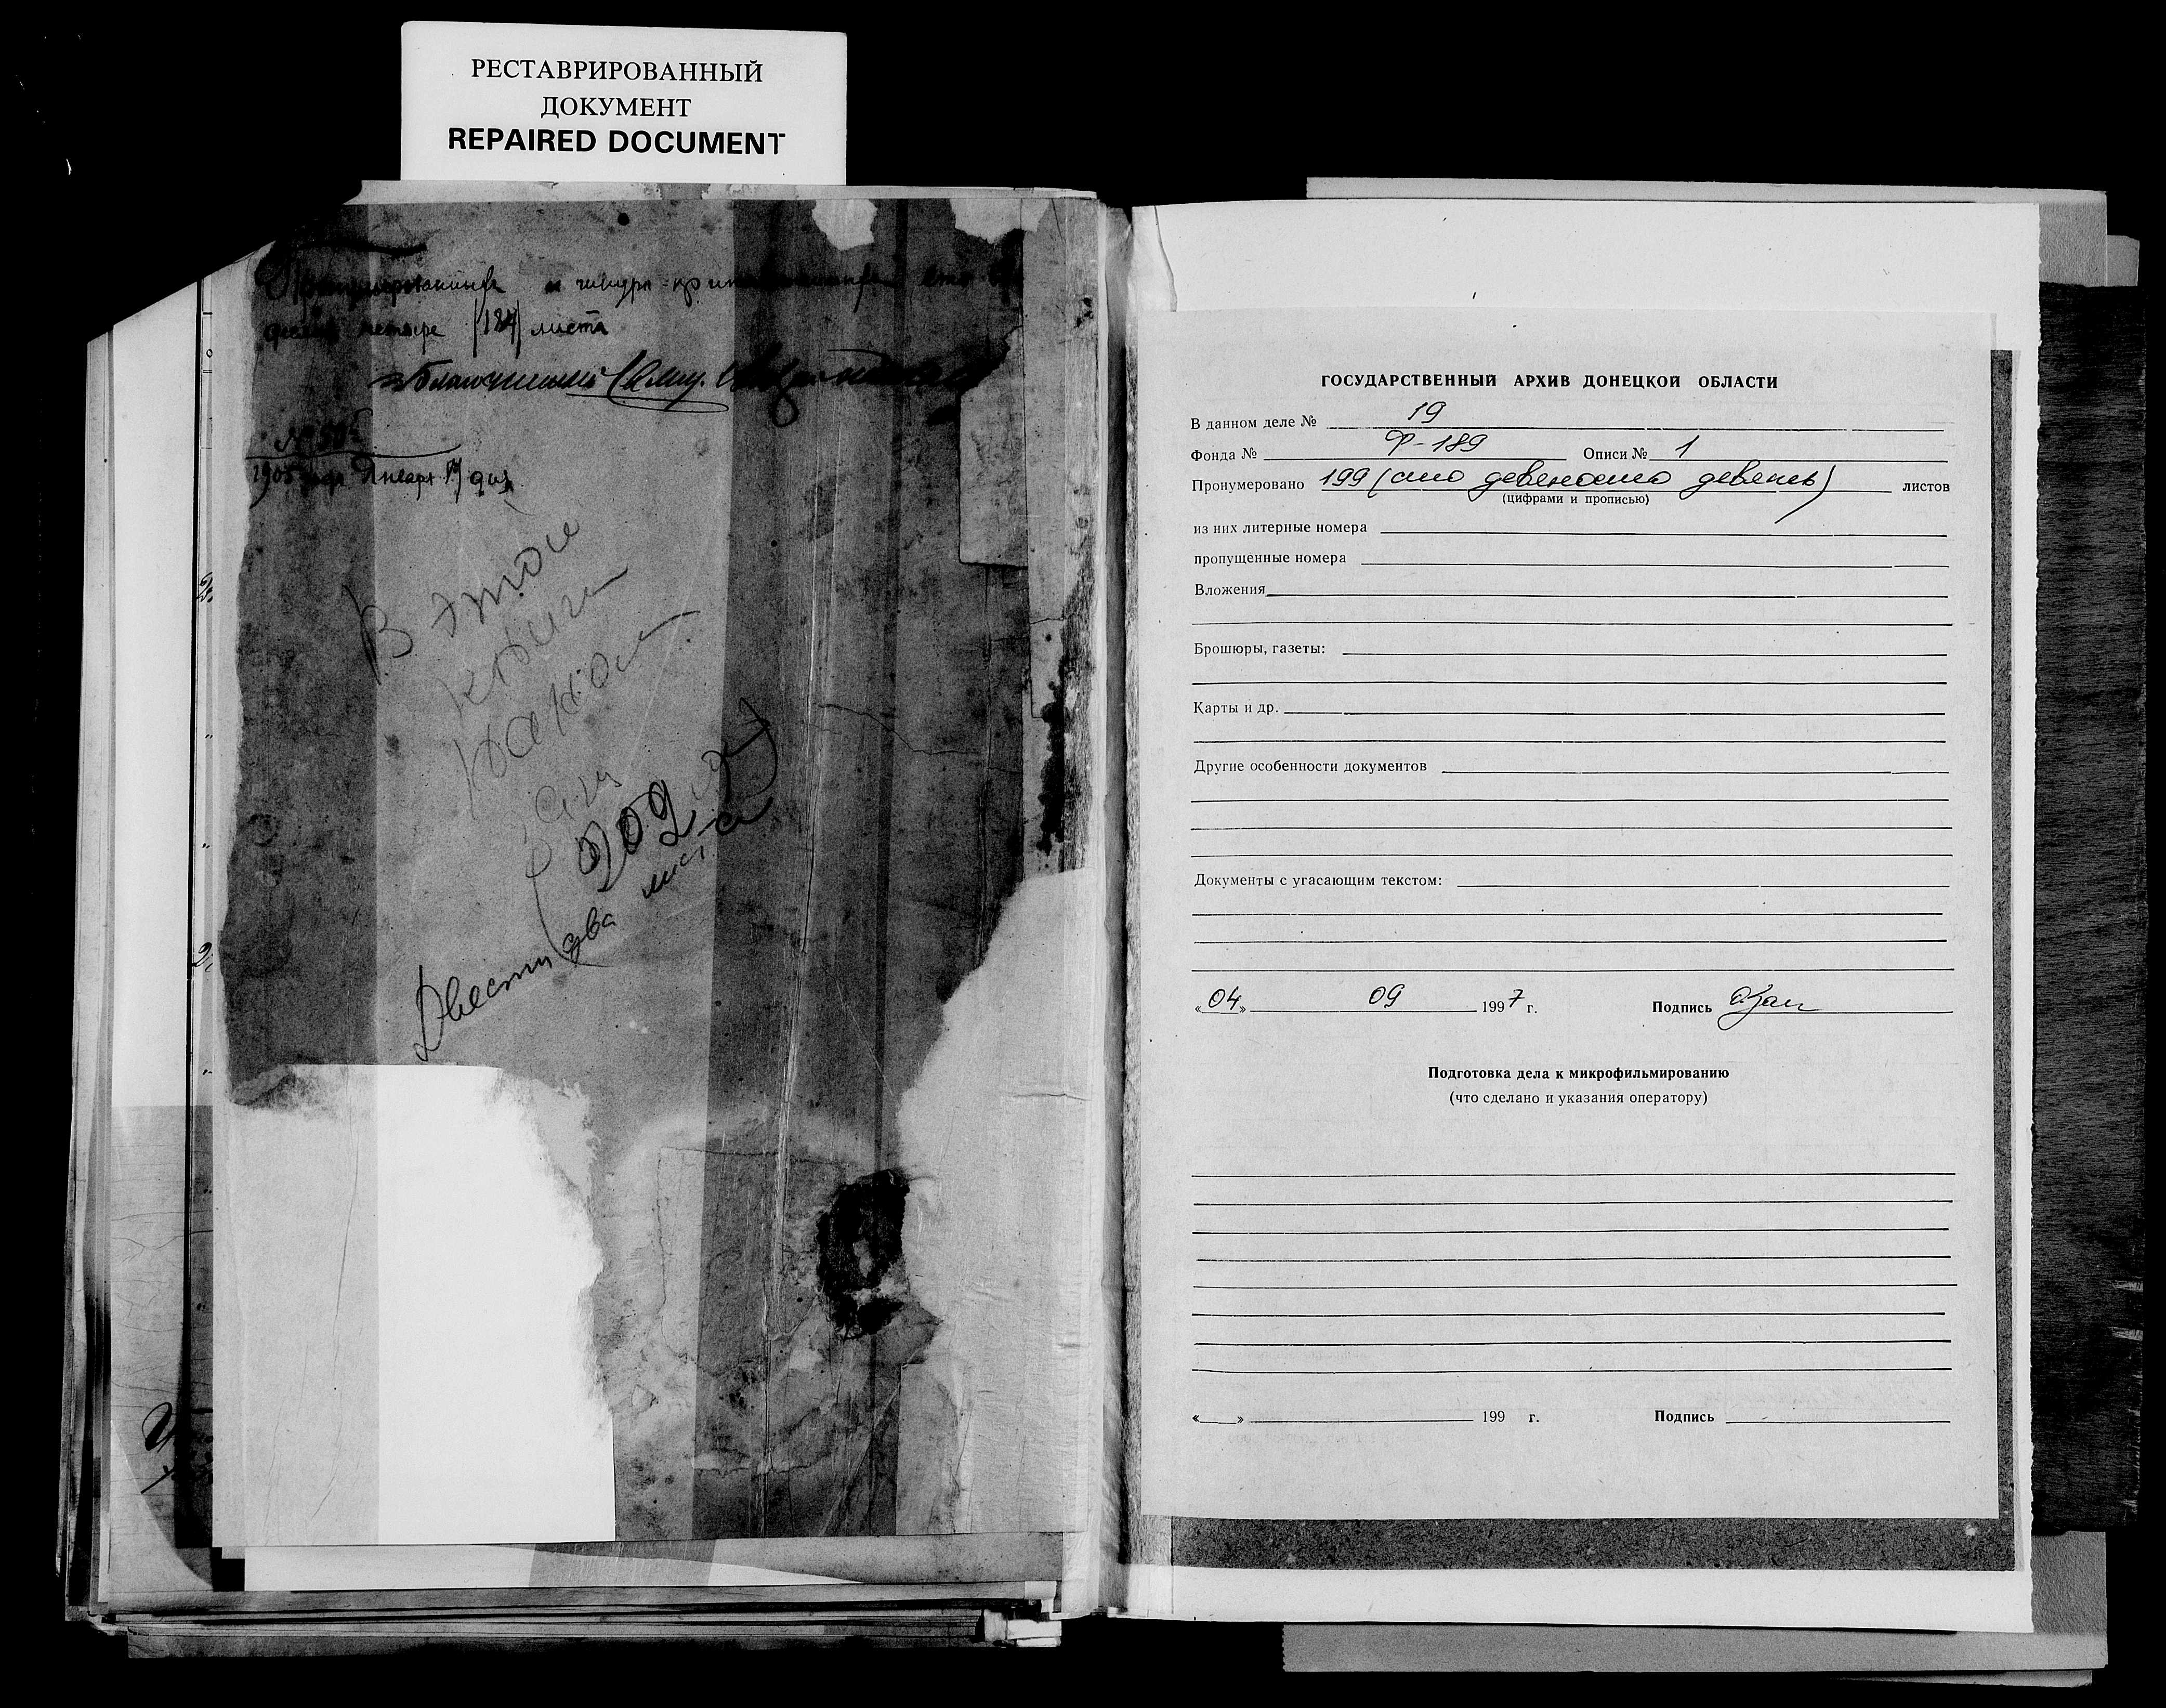 РЕСТАВРИРОВАННЫЙ
ДОКУМЕНТ
REPAIRED DOCUMENT
четыре (184) листа
Благочинный Свящ.
1905 года Января 19 дня
В этой
книги
(202)
Двести два листа
ГОСУДАРСТВЕННЫЙ АРХИВ ДОНЕЦКОЙ ОБЛАСТИ
В данном деле № 19
Фонда № Ф-189 Описи № 1
Пронумеровано 199 (сто девяносто девять) листов
(цифрами и прописью)
из них литерные номера
пропущенные номера
Вложения
Брошюры, газеты:
Карты и др.
Другие особенности документов
Документы с угасающим текстом:
«04» 09 1997 г. Подпись
Подготовка дела к микрофильмированию
(что сделано и указания оператору)
«    » 199   г. Подпись